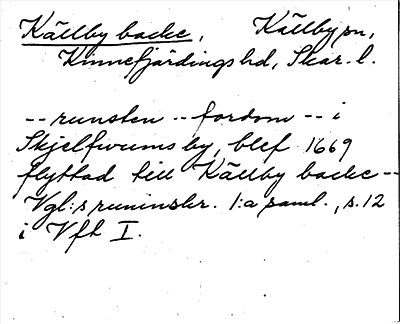 Källby backe, Källby sn,
Kinnefjärdings hd, Skar. l.
-- runsten -- fordom -- i
Skjelfwums by, blef 1669
flyttad till Källby backe --
Vgl:s runinskr. 1:a saml., s. 12
i Vft I.